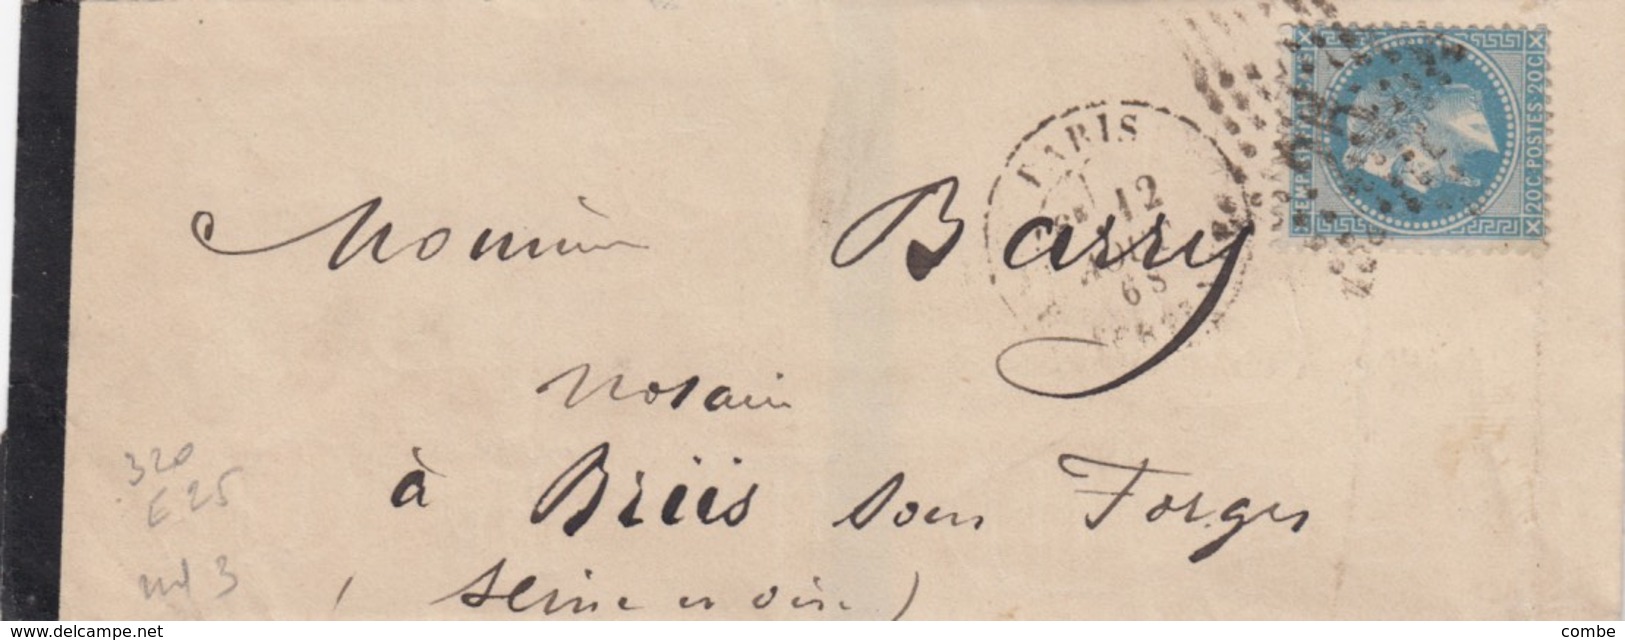 PARIS
12
AOUT
68
20C POSTES 20C
Monsieur Barry
Notaire
à Briis sous Forges
(Seine et Oise)
320
E 25
3
delcampe.net
combe